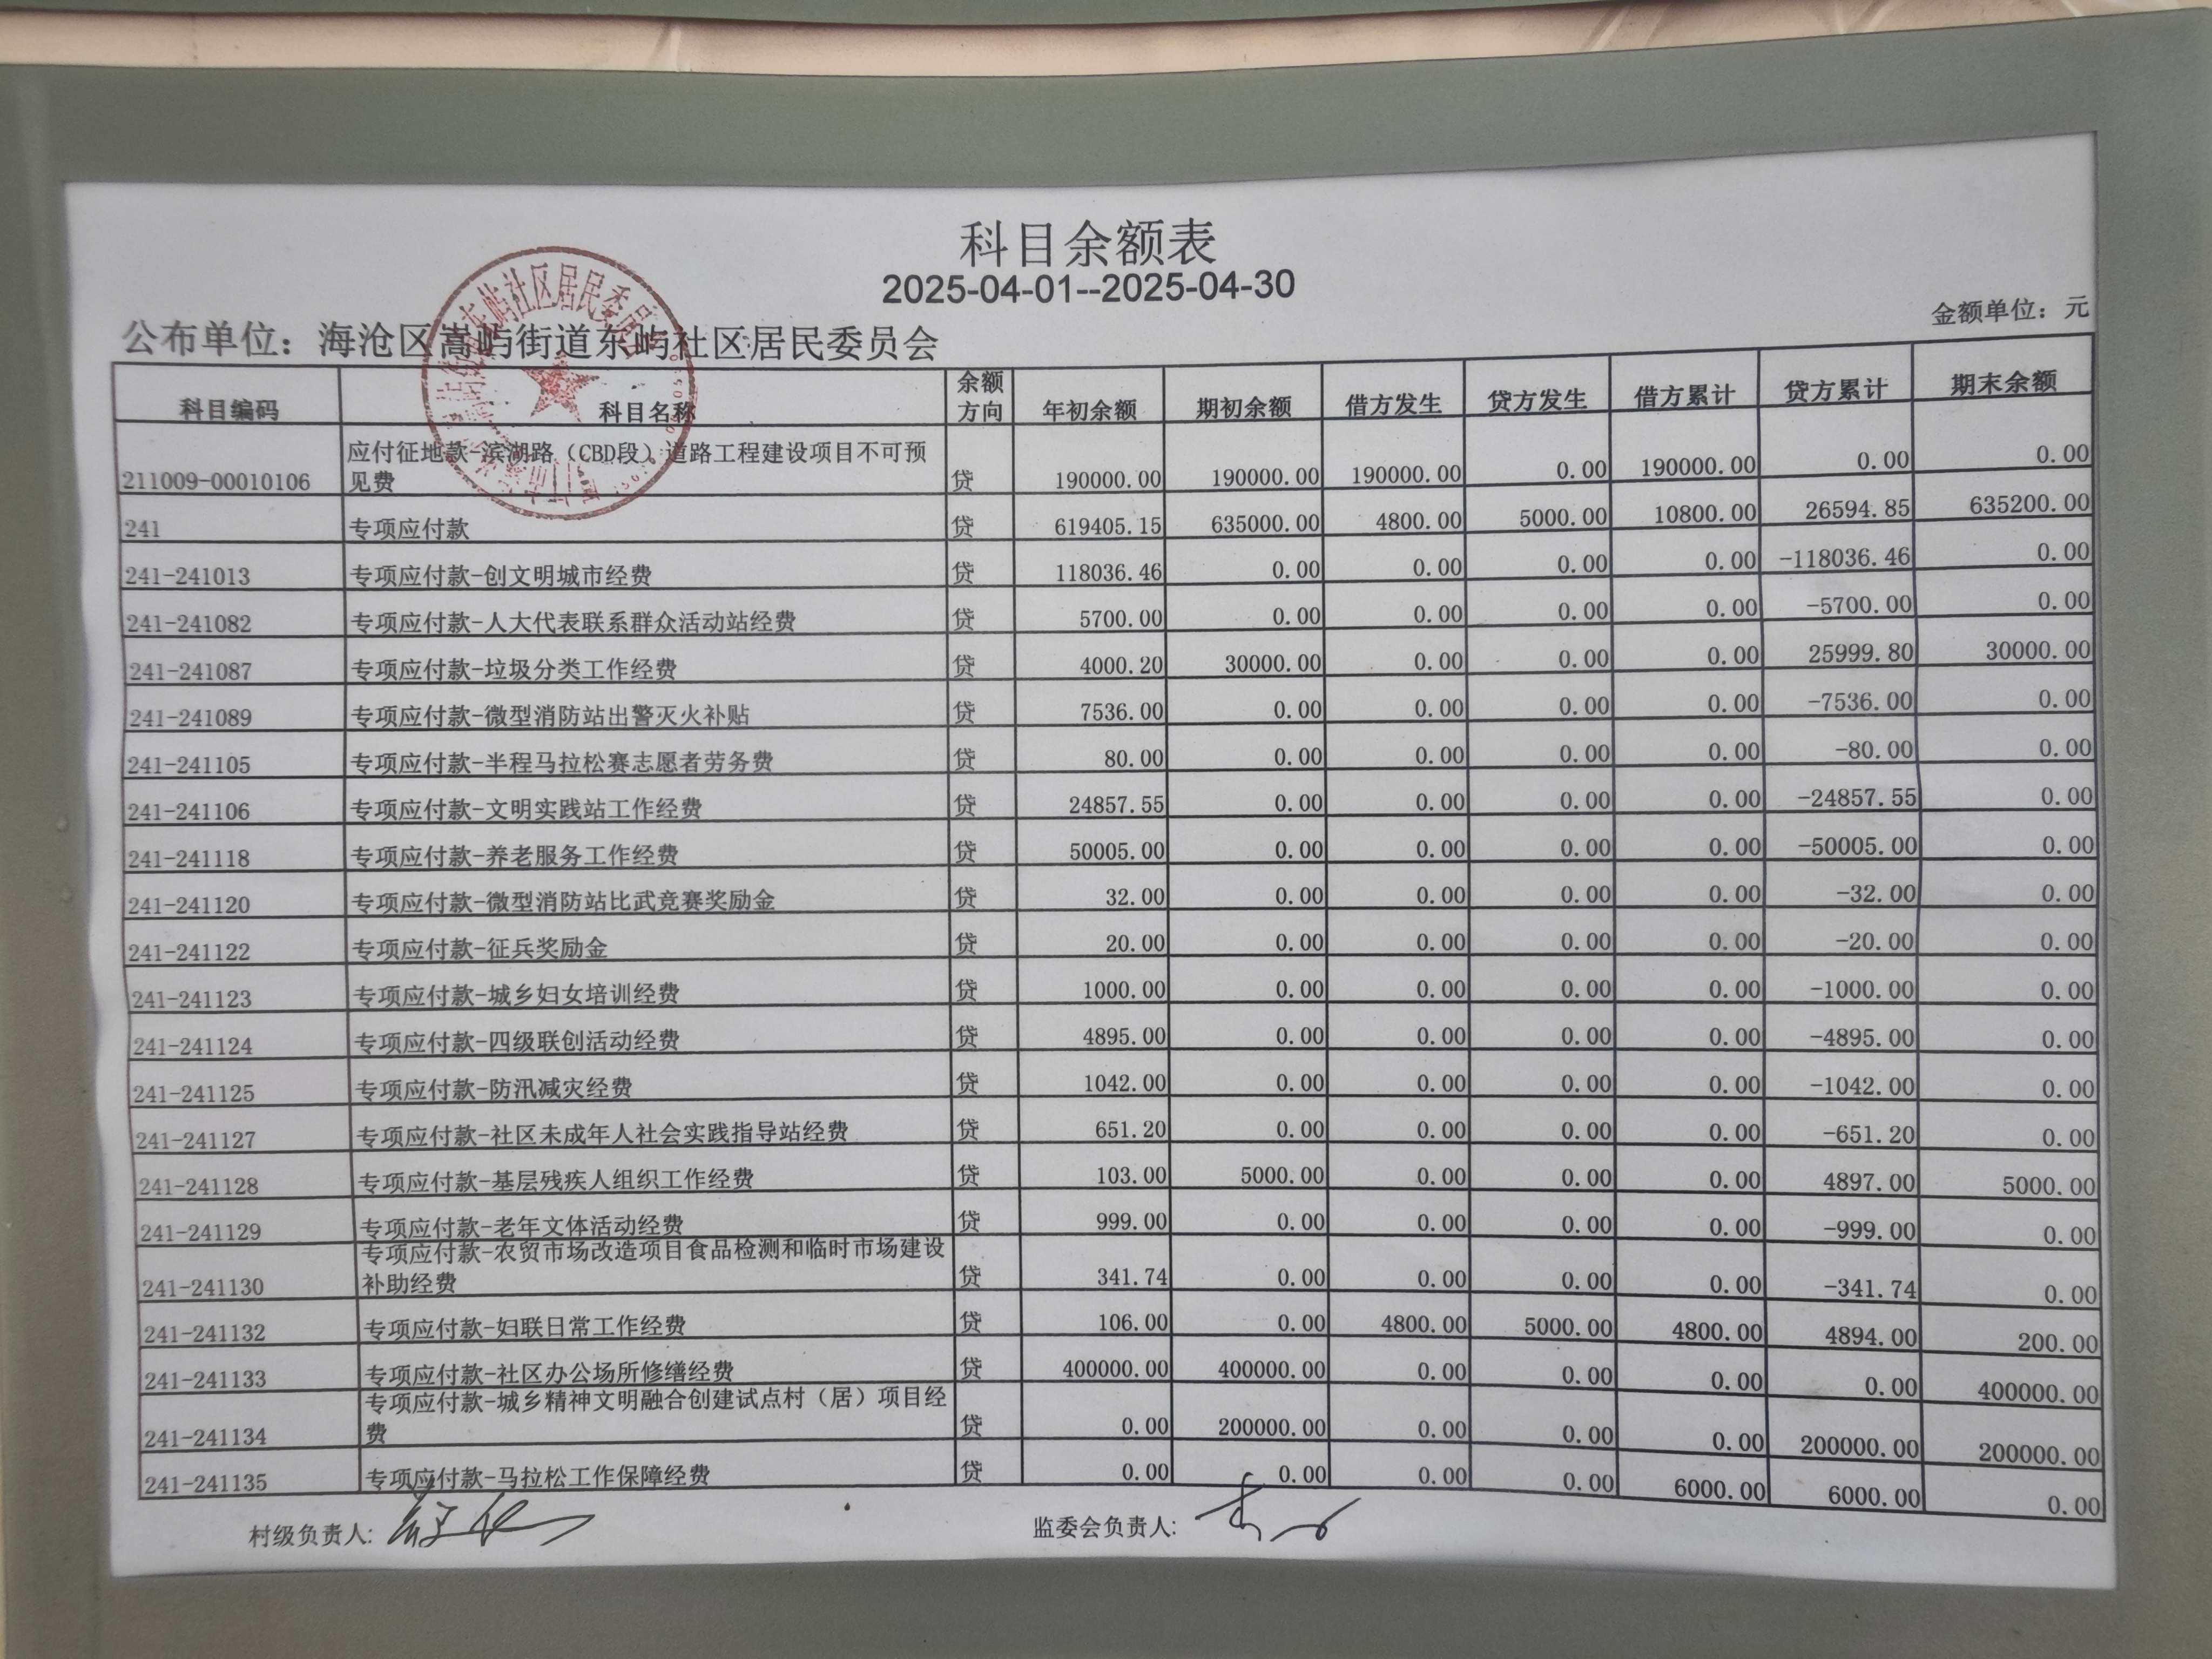 科目余额表
2025-04-01--2025-04-30
公布单位：海沧区嵩屿街道东屿社区居民委员会 金额单位：元
科目编码 科目名称 余额方向 年初余额 期初余额 借方发生 贷方发生 借方累计 贷方累计 期末余额
211009-00010106 应付征地款-滨湖路（CBD段）道路工程建设项目不可预见费 贷 190000.00 190000.00 190000.00 0.00 190000.00 0.00 0.00
241 专项应付款 贷 619405.15 635000.00 4800.00 5000.00 10800.00 26594.85 635200.00
241-241013 专项应付款-创文明城市经费 贷 118036.46 0.00 0.00 0.00 0.00 -118036.46 0.00
241-241082 专项应付款-人大代表联系群众活动站经费 贷 5700.00 0.00 0.00 0.00 0.00 -5700.00 0.00
241-241087 专项应付款-垃圾分类工作经费 贷 4000.20 30000.00 0.00 0.00 0.00 25999.80 30000.00
241-241089 专项应付款-微型消防站出警灭火补贴 贷 7536.00 0.00 0.00 0.00 0.00 -7536.00 0.00
241-241105 专项应付款-半程马拉松赛志愿者劳务费 贷 80.00 0.00 0.00 0.00 0.00 -80.00 0.00
241-241106 专项应付款-文明实践站工作经费 贷 24857.55 0.00 0.00 0.00 0.00 -24857.55 0.00
241-241118 专项应付款-养老服务工作经费 贷 50005.00 0.00 0.00 0.00 0.00 -50005.00 0.00
241-241120 专项应付款-微型消防站比武竞赛奖励金 贷 32.00 0.00 0.00 0.00 0.00 -32.00 0.00
241-241122 专项应付款-征兵奖励金 贷 20.00 0.00 0.00 0.00 0.00 -20.00 0.00
241-241123 专项应付款-城乡妇女培训经费 贷 1000.00 0.00 0.00 0.00 0.00 -1000.00 0.00
241-241124 专项应付款-四级联创活动经费 贷 4895.00 0.00 0.00 0.00 0.00 -4895.00 0.00
241-241125 专项应付款-防汛减灾经费 贷 1042.00 0.00 0.00 0.00 0.00 -1042.00 0.00
241-241127 专项应付款-社区未成年人社会实践指导站经费 贷 651.20 0.00 0.00 0.00 0.00 -651.20 0.00
241-241128 专项应付款-基层残疾人组织工作经费 贷 103.00 5000.00 0.00 0.00 0.00 4897.00 5000.00
241-241129 专项应付款-老年文体活动经费 贷 999.00 0.00 0.00 0.00 0.00 -999.00 0.00
241-241130 专项应付款-农贸市场改造项目食品检测和临时市场建设补助经费 贷 341.74 0.00 0.00 0.00 0.00 -341.74 0.00
241-241132 专项应付款-妇联日常工作经费 贷 106.00 0.00 4800.00 5000.00 4800.00 4894.00 200.00
241-241133 专项应付款-社区办公场所修缮经费 贷 400000.00 400000.00 0.00 0.00 0.00 0.00 400000.00
241-241134 专项应付款-城乡精神文明融合创建试点村（居）项目经费 贷 0.00 200000.00 0.00 0.00 0.00 200000.00 200000.00
241-241135 专项应付款-马拉松工作保障经费 贷 0.00 0.00 0.00 0.00 6000.00 6000.00 0.00
村级负责人: 监委会负责人: